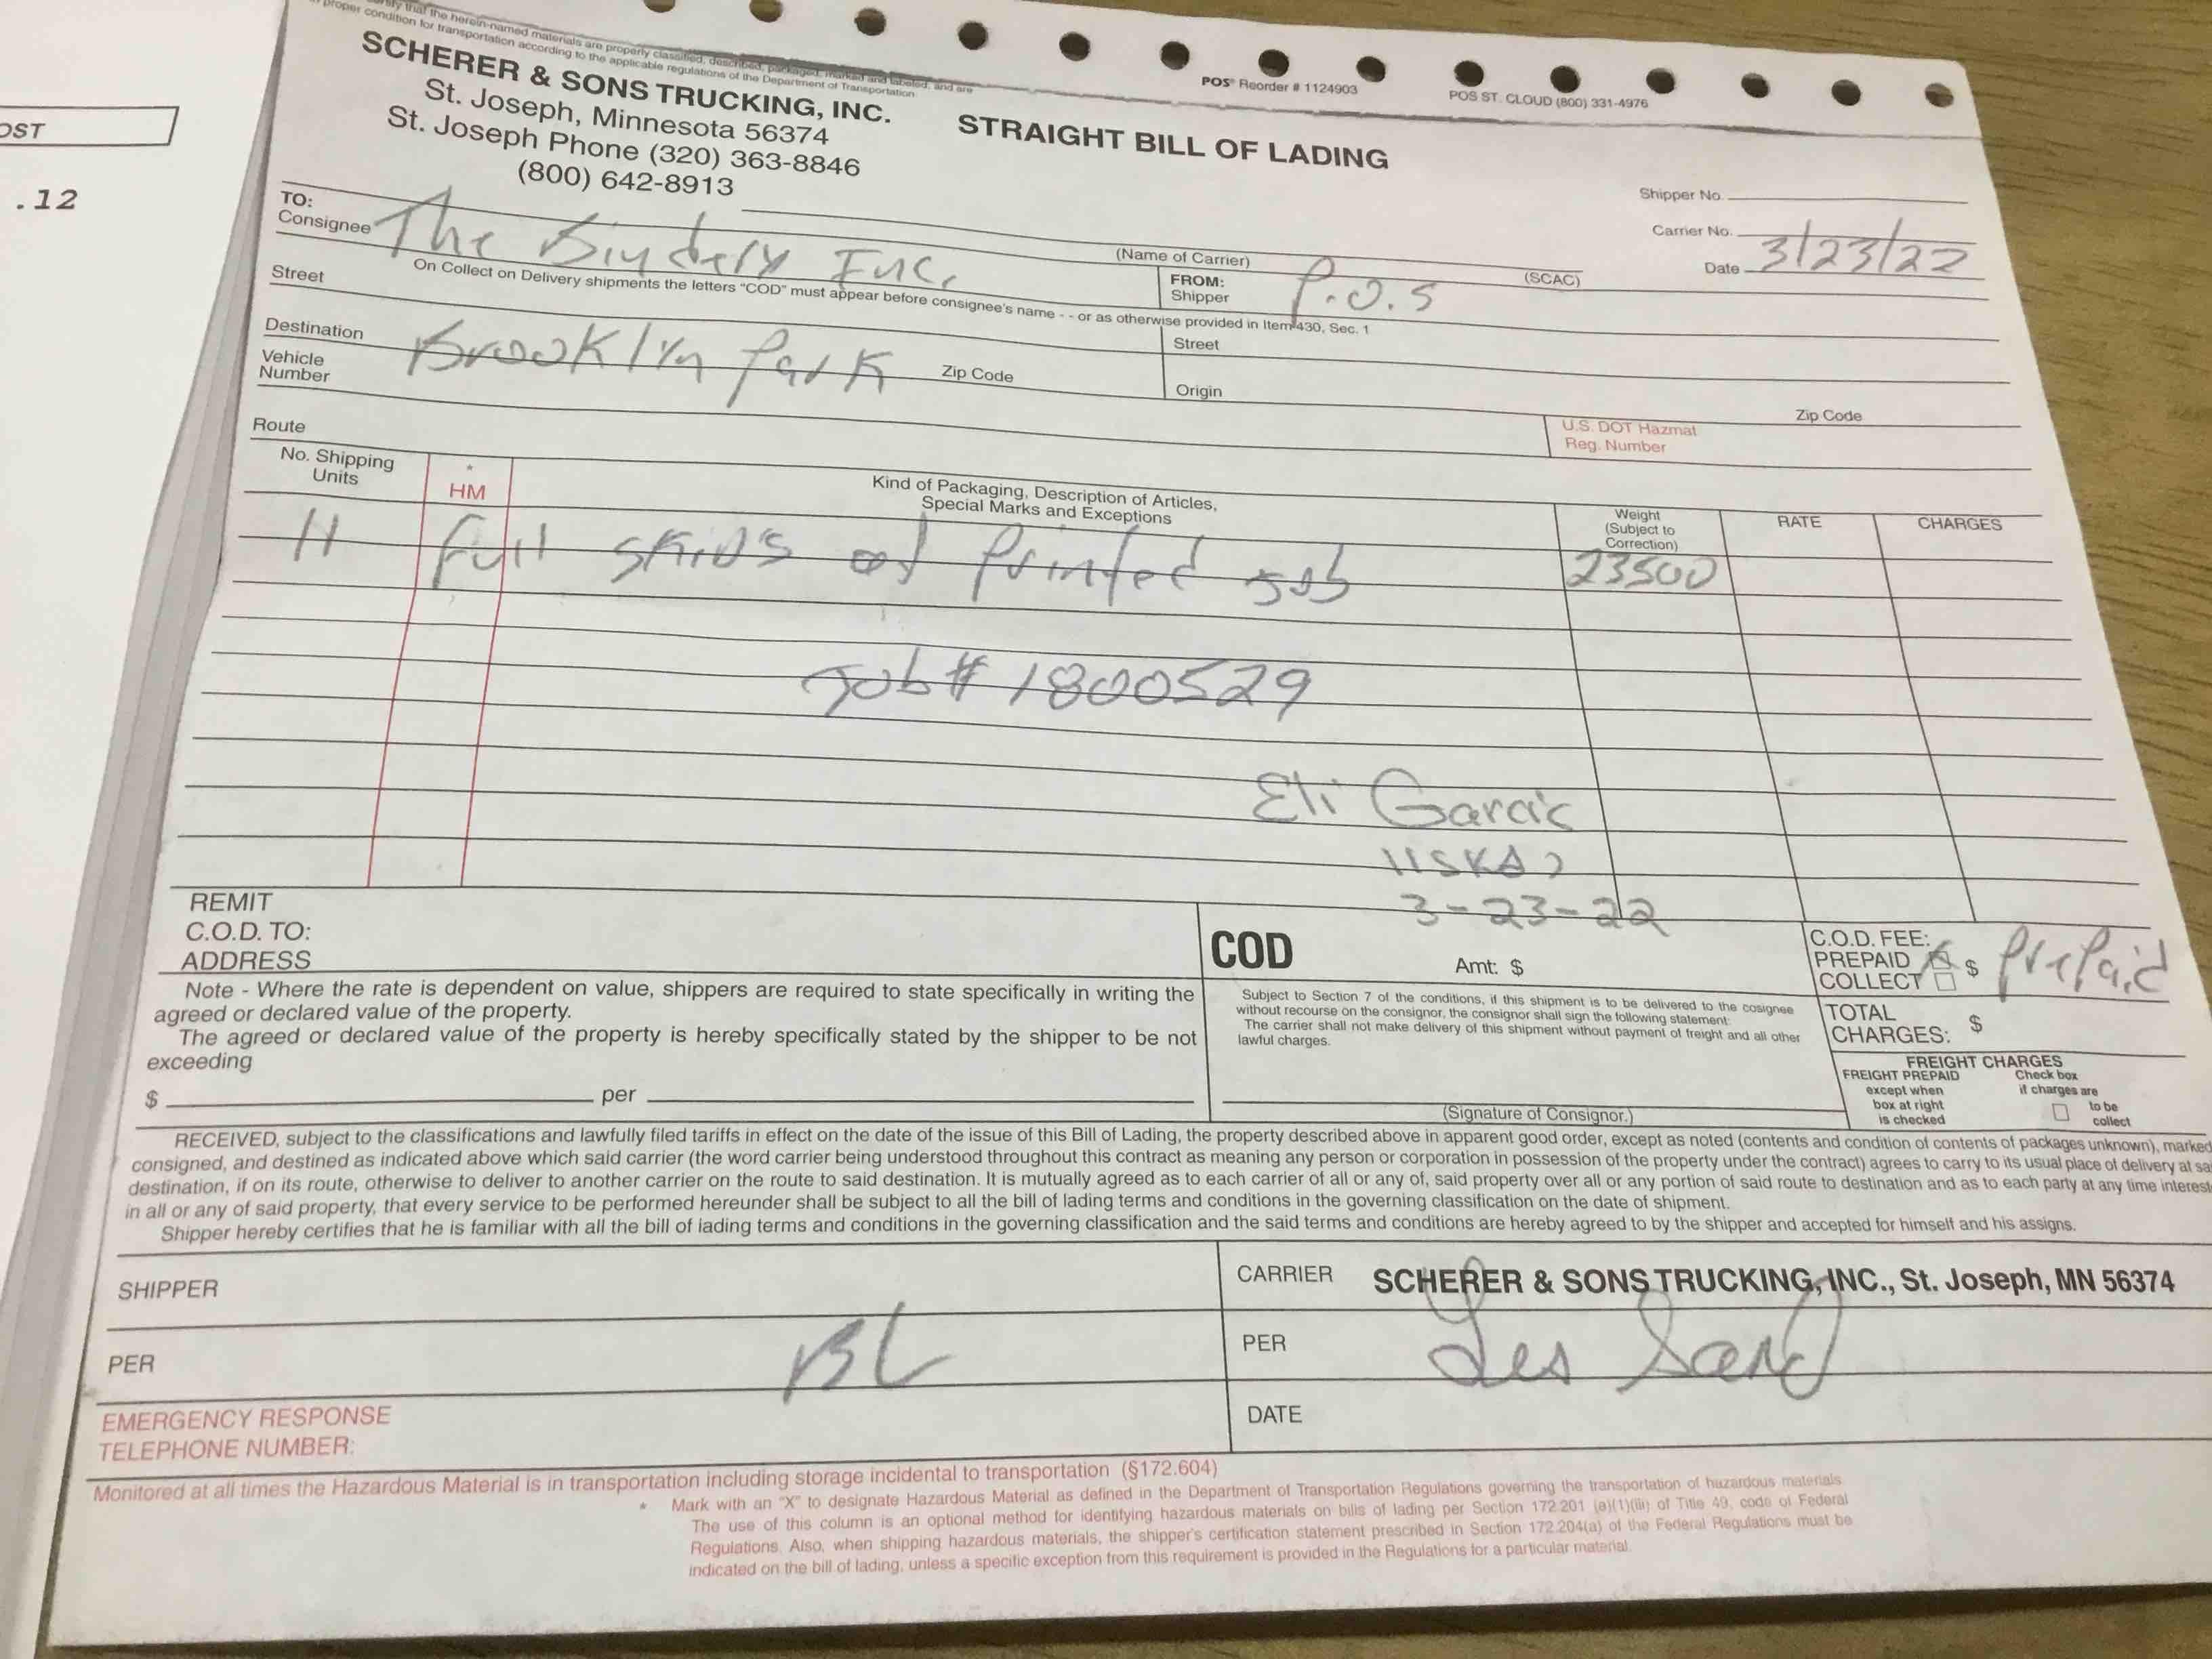 OST
.12
certify that the herein-named materials are properly classified, described, packaged, marked and labeled, and are
proper condition for transportation according to the applicable regulations of the Department of Transportation
POS® Reorder # 1124903
POS ST. CLOUD (800) 331-4976
SCHERER & SONS TRUCKING, INC.
St. Joseph, Minnesota 56374
St. Joseph Phone (320) 363-8846
(800) 642-8913
STRAIGHT BILL OF LADING
Shipper No.
Carrier No.
Date 3/23/22
(Name of Carrier)
(SCAC)
TO:
Consignee The Bindery Inc.
FROM:
Shipper P.O.S
On Collect on Delivery shipments the letters "COD" must appear before consignee's name - - or as otherwise provided in Item 430, Sec. 1
Street
Street
Destination Brooklyn Park Zip Code
Origin
Zip Code
Vehicle
Number
U.S. DOT Hazmat
Reg. Number
Route
No. Shipping
Units
*
HM
Kind of Packaging, Description of Articles,
Special Marks and Exceptions
Weight
(Subject to
Correction)
RATE
CHARGES
11 Full skid's of Printed Job 23500
Job# 1800529
Eli
3-23-22
REMIT
C.O.D. TO:
ADDRESS
COD
Amt: $
C.O.D. FEE:
PREPAID
COLLECT
$ Prepaid
Note - Where the rate is dependent on value, shippers are required to state specifically in writing the
agreed or declared value of the property.
The agreed or declared value of the property is hereby specifically stated by the shipper to be not
exceeding
$ per
Subject to Section 7 of the conditions, if this shipment is to be delivered to the cosignee
without recourse on the consignor, the consignor shall sign the following statement:
The carrier shall not make delivery of this shipment without payment of freight and all other
lawful charges.
(Signature of Consignor.)
TOTAL
CHARGES: $
FREIGHT CHARGES
FREIGHT PREPAID
except when
box at right
is checked
Check box
if charges are
to be
collect
RECEIVED, subject to the classifications and lawfully filed tariffs in effect on the date of the issue of this Bill of Lading, the property described above in apparent good order, except as noted (contents and condition of contents of packages unknown), marked
consigned, and destined as indicated above which said carrier (the word carrier being understood throughout this contract as meaning any person or corporation in possession of the property under the contract) agrees to carry to its usual place of delivery at sa
destination, if on its route, otherwise to deliver to another carrier on the route to said destination. It is mutually agreed as to each carrier of all or any of, said property over all or any portion of said route to destination and as to each party at any time interest
in all or any of said property, that every service to be performed hereunder shall be subject to all the bill of lading terms and conditions in the governing classification on the date of shipment.
Shipper hereby certifies that he is familiar with all the bill of lading terms and conditions in the governing classification and the said terms and conditions are hereby agreed to by the shipper and accepted for himself and his assigns.
SHIPPER
CARRIER SCHERER & SONS TRUCKING, INC., St. Joseph, MN 56374
PER BL
PER Les Sand
DATE
EMERGENCY RESPONSE
TELEPHONE NUMBER:
Monitored at all times the Hazardous Material is in transportation including storage incidental to transportation (§172.604)
* Mark with an "X" to designate Hazardous Material as defined in the Department of Transportation Regulations governing the transportation of hazardous materials
The use of this column is an optional method for identifying hazardous materials on bills of lading per Section 172.201 (a)(1)(iii) of Title 49, code of Federal
Regulations. Also, when shipping hazardous materials, the shipper's certification statement prescribed in Section 172.204(a) of the Federal Regulations must be
indicated on the bill of lading, unless a specific exception from this requirement is provided in the Regulations for a particular material.